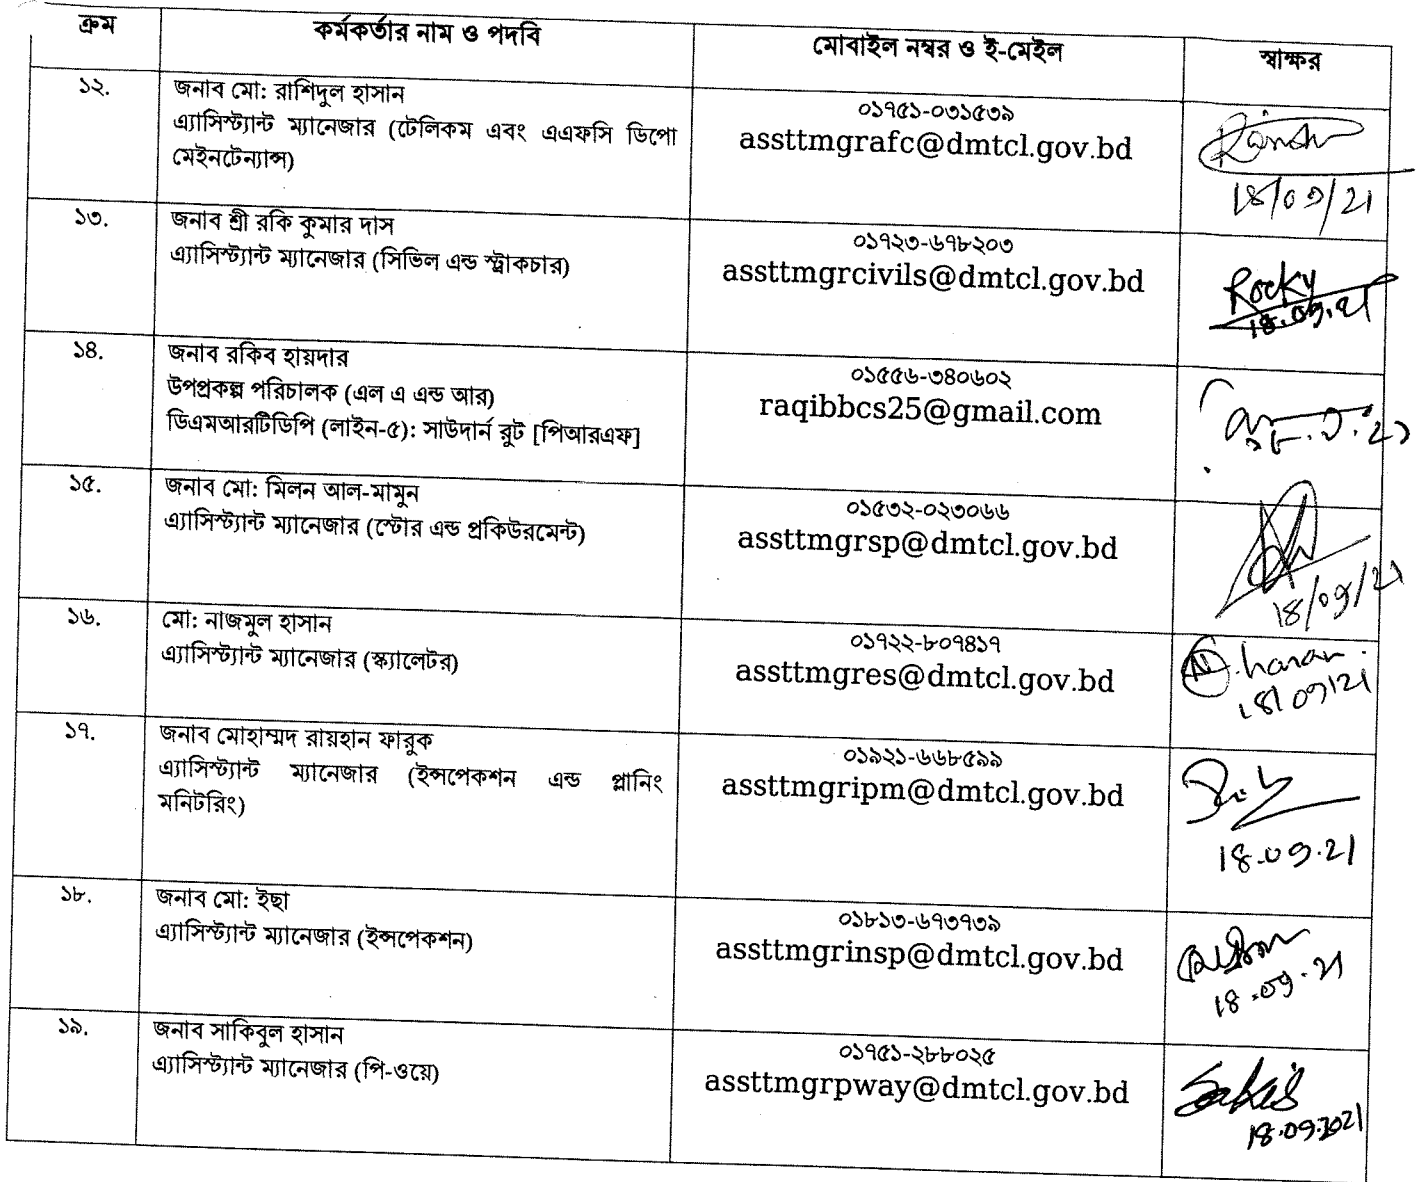 ক্রম কর্মকর্তার নাম ও পদবি মোবাইল নম্বর ও ই-মেইল স্বাক্ষর
১২. জনাব মো: রাশিদুল হাসান
এ্যাসিস্ট্যান্ট ম্যানেজার (টেলিকম এবং এএফসি ডিপো
মেইনটেন্যান্স)
০১৭৫১-০৩১৫৩৯
assttmgrafc@dmtcl.gov.bd
18/09/21
১৩. জনাব শ্রী রকি কুমার দাস
এ্যাসিস্ট্যান্ট ম্যানেজার (সিভিল এন্ড স্ট্রাকচার)
০১৭২৩-৬৭৮২০৩
assttmgrcivils@dmtcl.gov.bd
Rocky
18.09.21
১৪. জনাব রকিব হায়দার
উপপ্রকল্প পরিচালক (এল এ এন্ড আর)
ডিএমআরটিডিপি (লাইন-৫): সাউদার্ন রুট [পিআরএফ]
০১৫৫৬-৩৪০৬০২
raqibbcs25@gmail.com
১৫. জনাব মো: মিলন আল-মামুন
এ্যাসিস্ট্যান্ট ম্যানেজার (স্টোর এন্ড প্রকিউরমেন্ট)
০১৫৩২-০২৩০৬৬
assttmgrsp@dmtcl.gov.bd
18/09/21
১৬. মো: নাজমুল হাসান
এ্যাসিস্ট্যান্ট ম্যানেজার (স্ক্যালেটর)
০১৭২২-৮০৭৪১৭
assttmgres@dmtcl.gov.bd
18/09/21
১৭. জনাব মোহাম্মদ রায়হান ফারুক
এ্যাসিস্ট্যান্ট ম্যানেজার (ইন্সপেকশন এন্ড প্লানিং
মনিটরিং)
০১৯২১-৬৬৮৫৯৯
assttmgripm@dmtcl.gov.bd
18.09.21
১৮. জনাব মো: ইছা
এ্যাসিস্ট্যান্ট ম্যানেজার (ইন্সপেকশন)
০১৮১৩-৬৭৩৭৩৯
assttmgrinsp@dmtcl.gov.bd
18.09.21
১৯. জনাব সাকিবুল হাসান
এ্যাসিস্ট্যান্ট ম্যানেজার (পি-ওয়ে)
০১৭৫১-২৮৮০২৫
assttmgrpway@dmtcl.gov.bd
18.09.2021